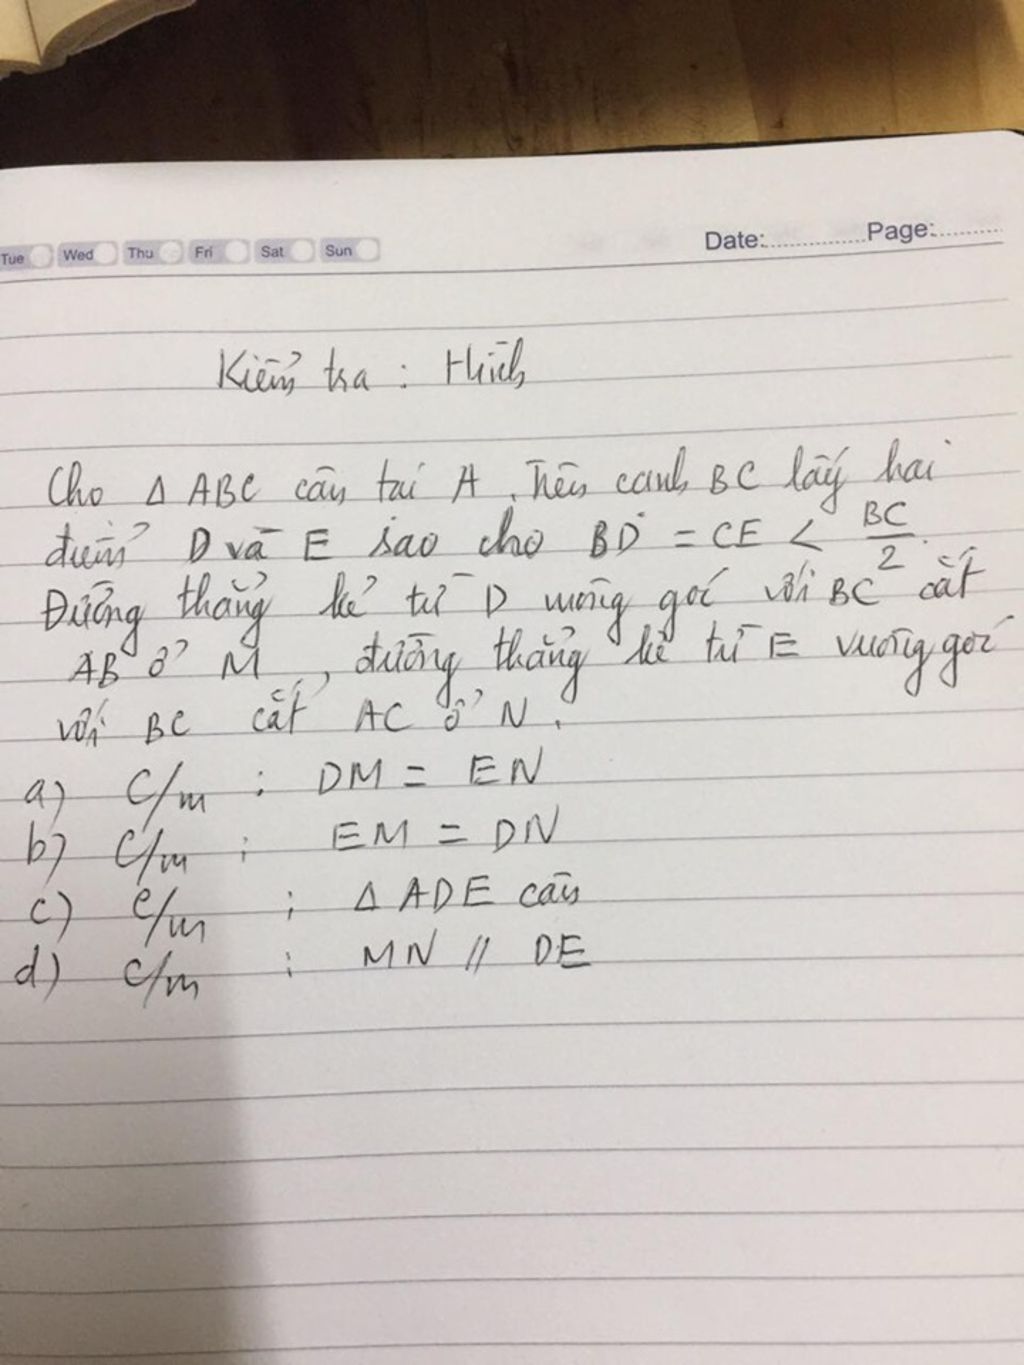 Tue Wed Thu Fri Sat Sun Date: Page:
Kiểm tra : Hình
Cho Δ ABC cân tại A. Trên cạnh BC lấy hai
điểm D và E sao cho BD = CE < BC/2.
Đường thẳng kẻ từ D vuông góc với BC cắt
AB ở M, đường thẳng kẻ từ E vuông góc
với BC cắt AC ở N.
a) C/m : DM = EN
b) C/m : EM = DN
c) C/m : Δ ADE cân
d) C/m : MN // DE